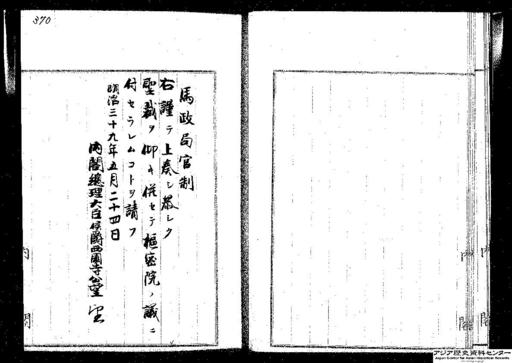 370
馬政局官制
右謹テ上奏シ恭シク
聖裁ヲ仰キ併セテ樞密院ノ議ニ
付セラレムコトヲ請フ
明治三十九年五月二十四日
內閣總理大臣侯爵西園寺公望
內閣
アジア歴史資料センター
Japan Center for Asian Historical Records